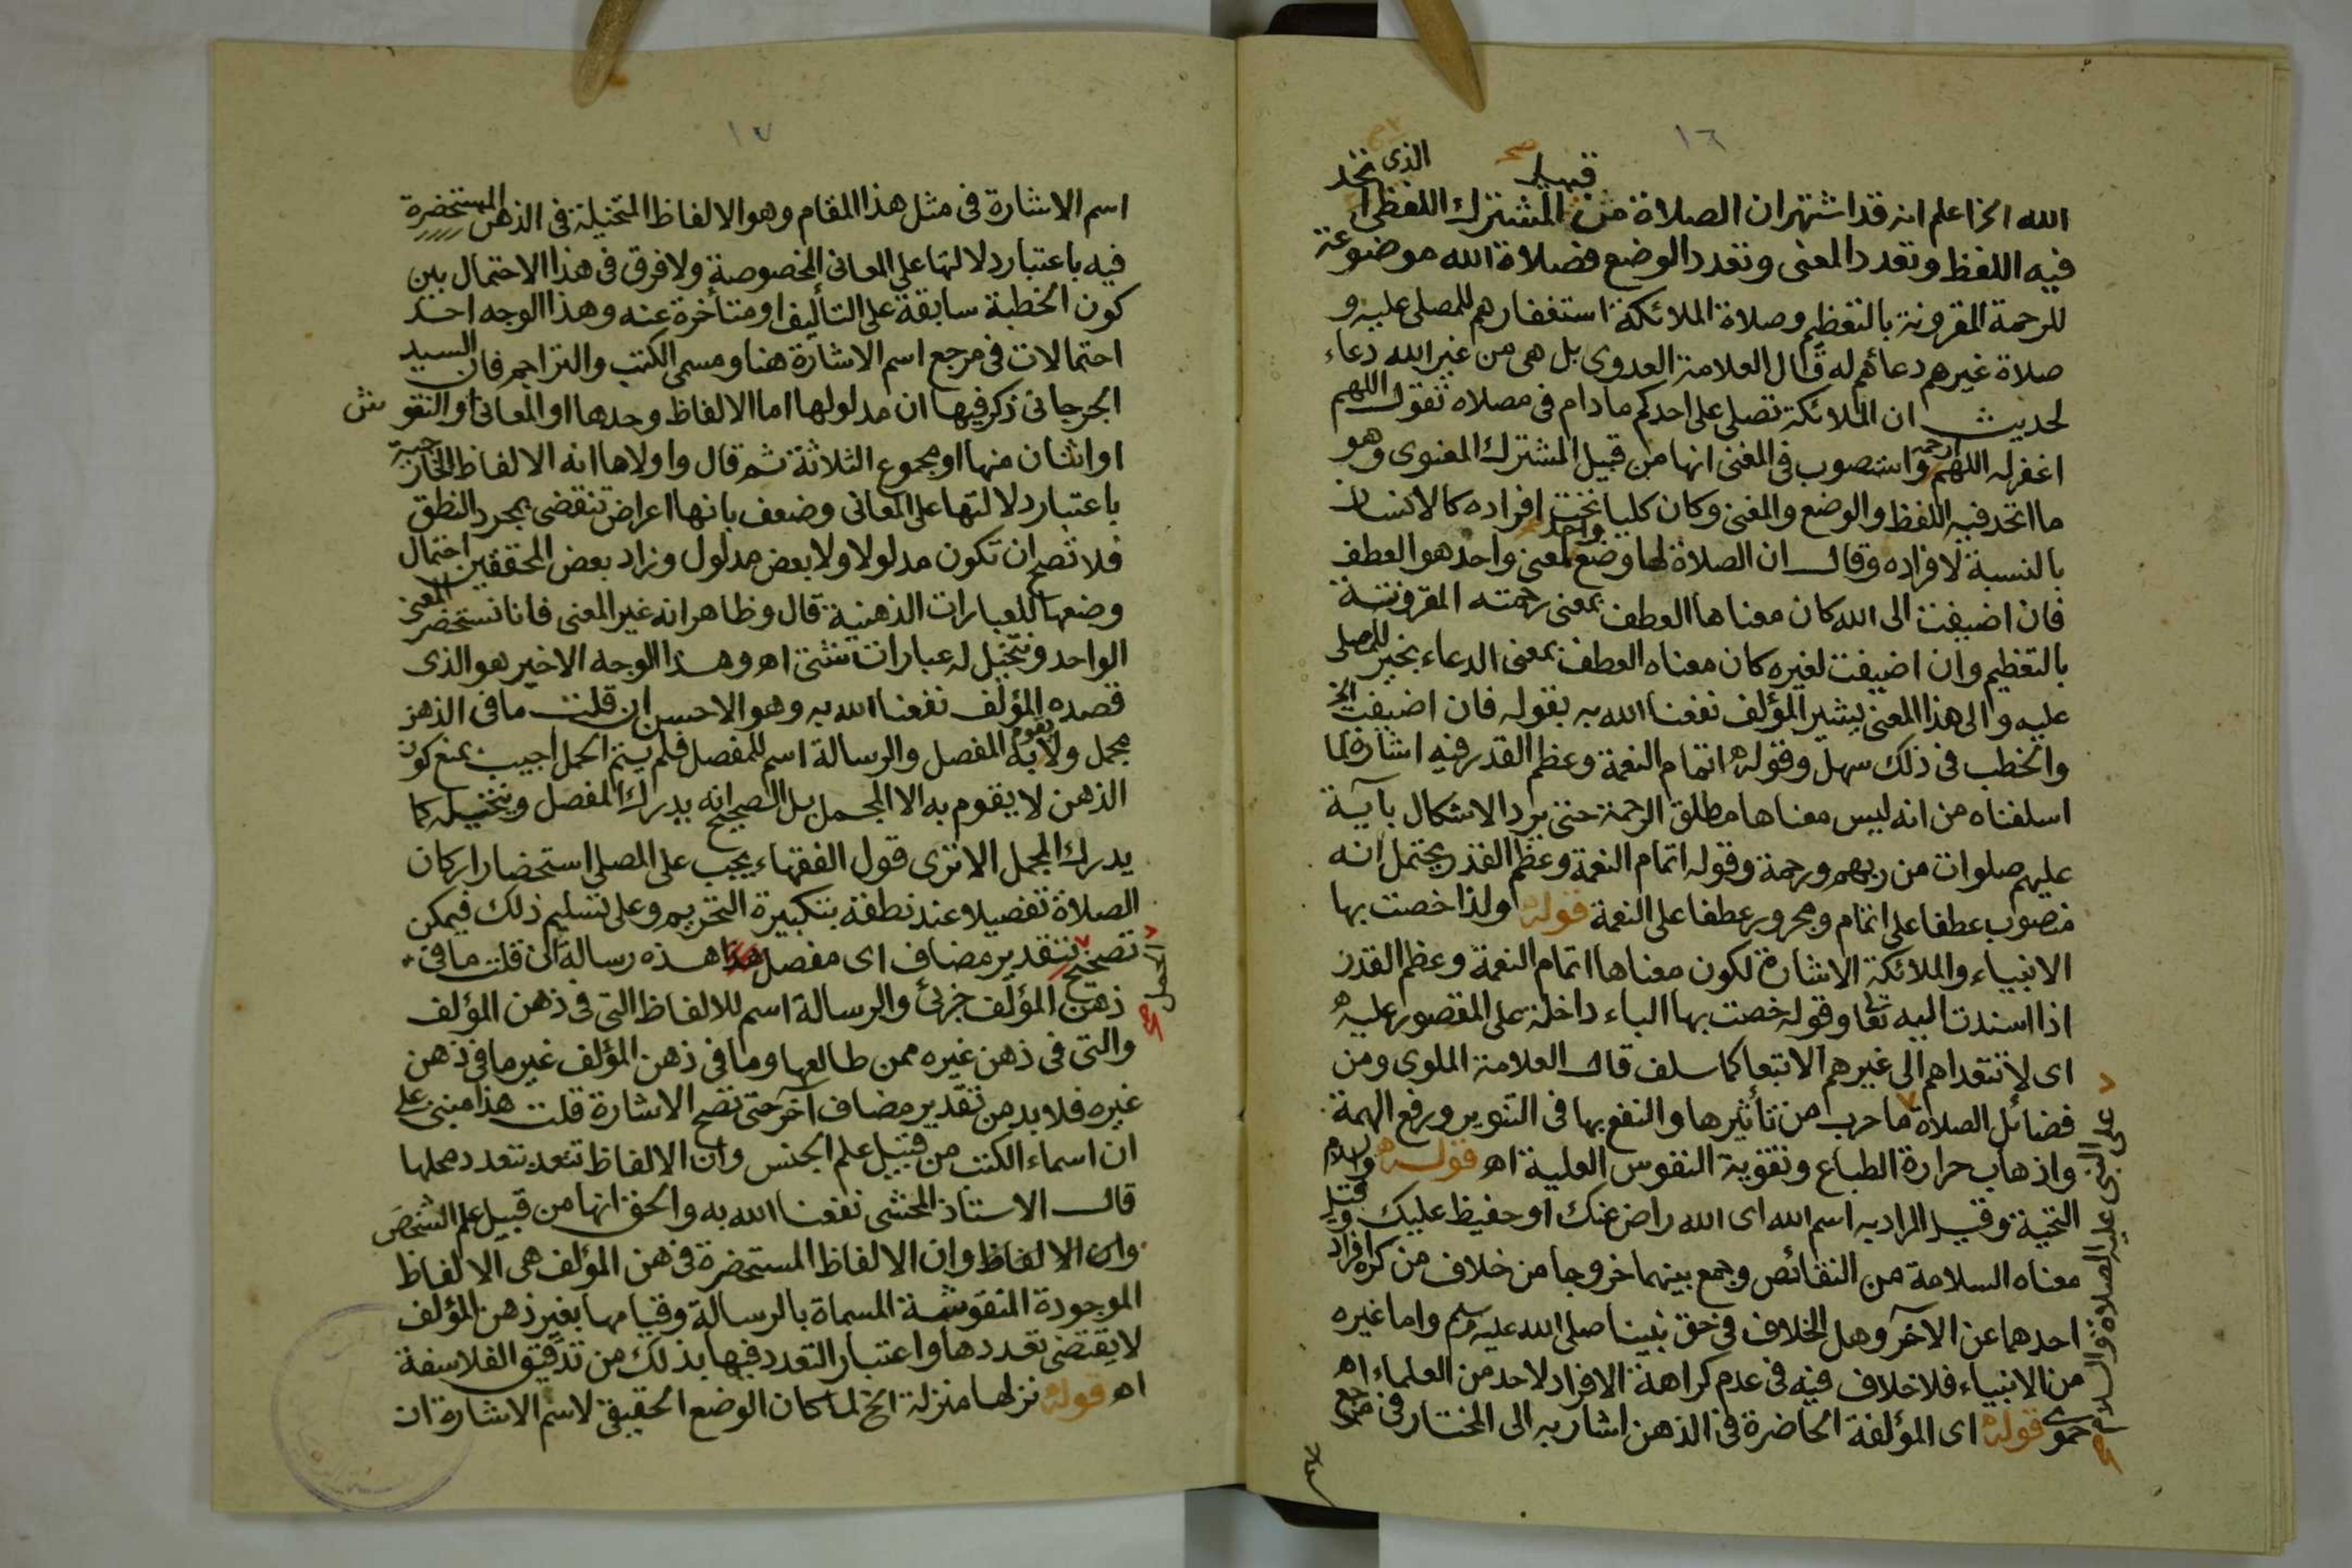 ١٦
الله الخ اعلم انه قد اشتهر ان الصلاة من قبيل المشترك اللفظى الذى اتحد
فيه اللفظ وتعدد المعنى وتعدد الوضع فصلاة الله موضوعة
للرحمة المقرونة بالتعظيم وصلاة الملائكة استغفارهم للمصلى عليه و
صلاة غيرهم دعائهم له قال العلامة العدوى بل هى من غير الله دعاء
لحديث ان الملائكة تصلى على احدكم مادام فى مصلاه تقول اللهم
اغفر له اللهم ارحمه واستصوب فى المغنى انها من قبيل المشترك المعنوى وهو
ما اتحد فيه اللفظ والوضع والمعنى وكان كليا تحته افراده كالانسان
بالنسبة لافراده وقال ان الصلاة لها وضع واحد لمعنى واحد هو العطف
فان اضيفت الى الله كان معناها العطف بمعنى رحمته المقرونة
بالتعظيم وان اضيفت لغيره كان معناه العطف بمعنى الدعاء بخير للمصلى
عليه والى هذا المعنى يشير المؤلف نفعنا الله به بقوله فان اضيفت الخ
والخطب فى ذلك سهل وقوله اتمام النعمة وعظم القدر فيه اشارة لما
اسلفناه من انه ليس معناها مطلق الرحمة حتى يرد الاشكال بآية
عليهم صلوات من ربهم ورحمة وقوله اتمام النعمة وعظم القدر يحتمل انه
منصوب عطفا على اتمام ومجرور عطفا على النعمة قوله ولذا خصت بها
الانبياء والملائكة الاشارة لكون معناها اتمام النعمة وعظم القدر
اذا اسندت اليه تعا وقوله خصت بها الباء داخلة على المقصور عليه
اى لا تتعداهم الى غيرهم الا تبعا كما سلف قال العلامة الملوى ومن
فضائل الصلاة ما جرب من تأثيرها والنفع بها فى التنوير ورفع الهمة
على النبى عليه الصلاة والسلام صح
واذهاب حرارة الطباع وتقوية النفوس العلية اه قوله وسلام
التحية وقيل المراد به اسم الله اى الله راض عنك او حفيظ عليك وقيل
معناه السلامة من النقائص وجمع بينهما خروجا من خلاف من كره افراد
احدهما عن الآخر وهل الخلاف فى حق نبينا صلى الله عليه وسلم واما غيره
من الانبياء فلا خلاف فيه فى عدم كراهة الافراد لاحد من العلماء اه
حموى قوله اى المؤلفة الحاضرة فى الذهن اشار به الى المختار فى مرجع
اسم
١٧
اسم الاشارة فى مثل هذا المقام وهو الالفاظ المتخيلة فى الذهن المستحضرة
فيه باعتبار دلالتها على المعانى المخصوصة ولا فرق فى هذا الاحتمال بين
كون الخطبة سابقة على التأليف او متأخرة عنه وهذا الوجه احد
احتمالات فى مرجع اسم الاشارة هنا ومسمى الكتب والتراجم فان السيد
الجرجانى ذكر فيها ان مدلولها اما الالفاظ وحدها او المعانى او النقوش
او اثنان منها او مجموع الثلاثة ثم قال واولاها انه الالفاظ الخارجية
باعتبار دلالتها على المعانى وضعف بانها اعراض تنقضى بمجرد النطق
فلا تصح ان تكون مدلولا ولا بعض مدلول وزاد بعض المحققين احتمال
وضعها للعبارات الذهنية قال وظاهر انه غير المعنى فانا نستحضر المعنى
الواحد ونتخيل له عبارات شتى اه وهذا الوجه الاخير هو الذى
قصده المؤلف نفعنا الله به وهو الاحسن ان قلت ما فى الذهن
مجمل ولا يقوم به المفصل والرسالة اسم للمفصل فلم يتم الحمل اجيب بمنع كون
الذهن لا يقوم به الا المجمل بل الصحيح انه يدرك المفصل ويتخيله كما
يدرك المجمل الا ترى قول الفقهاء يجب على المصلى استحضار اركان
الصلاة تفصيلا عند نطقه بتكبيرة التحريم وعلى تسليم ذلك فيمكن
تصحيح الحمل صح بتقدير مضاف اى مفصل هذه رسالة ان قلت ما فى
ذهن المؤلف جزئى والرسالة اسم للالفاظ التى فى ذهن المؤلف
والتى فى ذهن غيره ممن طالعها وما فى ذهن المؤلف غير ما فى ذهن
غيره فلا بد من تقدير مضاف آخر حتى تصح الاشارة قلت هذا مبنى على
ان اسماء الكتب من قبيل علم الجنس وان الالفاظ تتعدد بتعدد محلها
قال الاستاذ المحشى نفعنا الله به والحق انها من قبيل علم الشخص
وان الالفاظ وان الالفاظ المستحضرة فى ذهن المؤلف هى الالفاظ
الموجودة المنقوشة المسماة بالرسالة وقيامها بغير ذهن المؤلف
لا يقتضى تعددها واعتبار التعدد فيها بذلك من تدقيق الفلاسفة
اه قوله نزلها منزلة الخ لما كان الوضع الحقيقى لاسم الاشارة ان